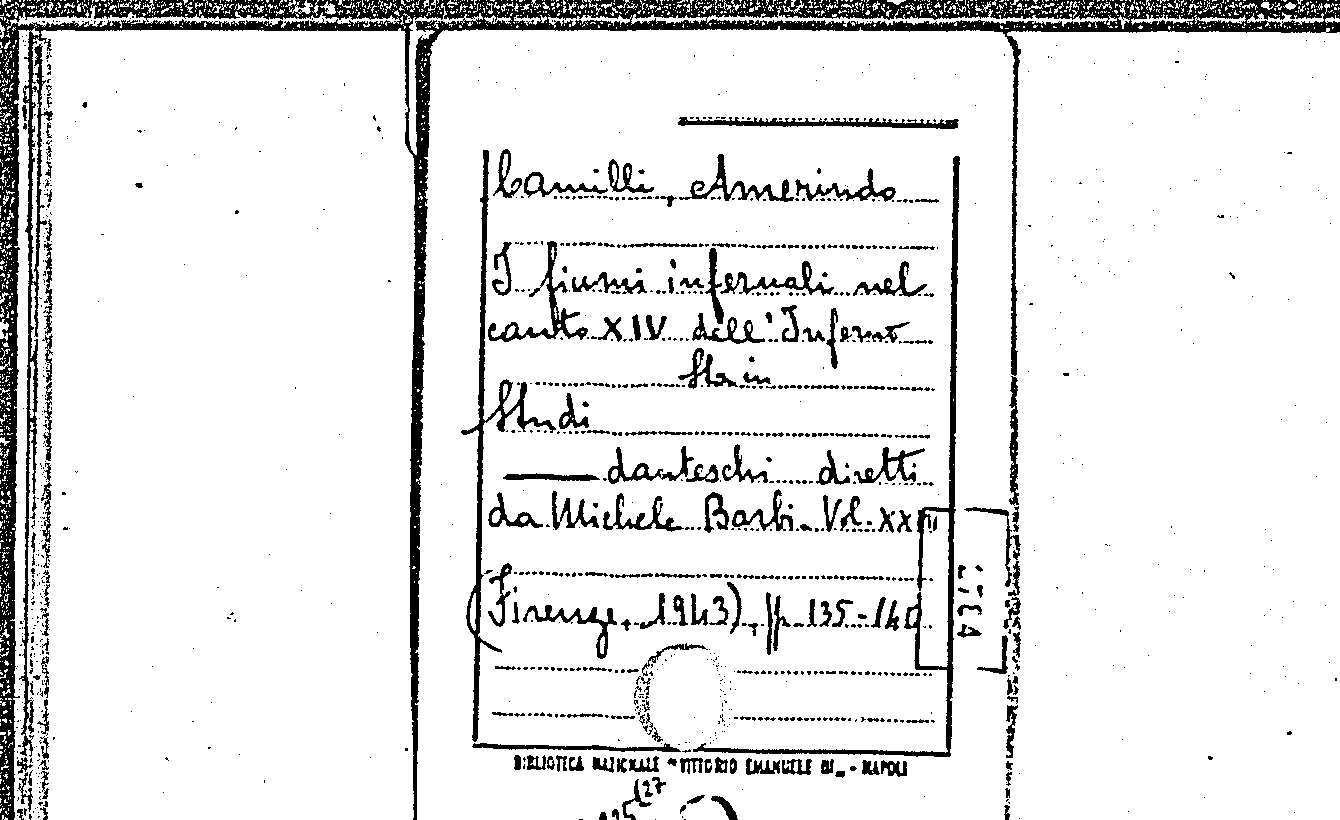 Camilli, Amerindo
I fiumi infernali nel
canto XIV dell'Inferno
Sta in
Studi
danteschi diretti
da Michele Barbi. Vol. XXVII
(Firenze, 1943), pp. 135-140
BIBLIOTECA NAZIONALE "VITTORIO EMANUELE III" - NAPOLI
(27